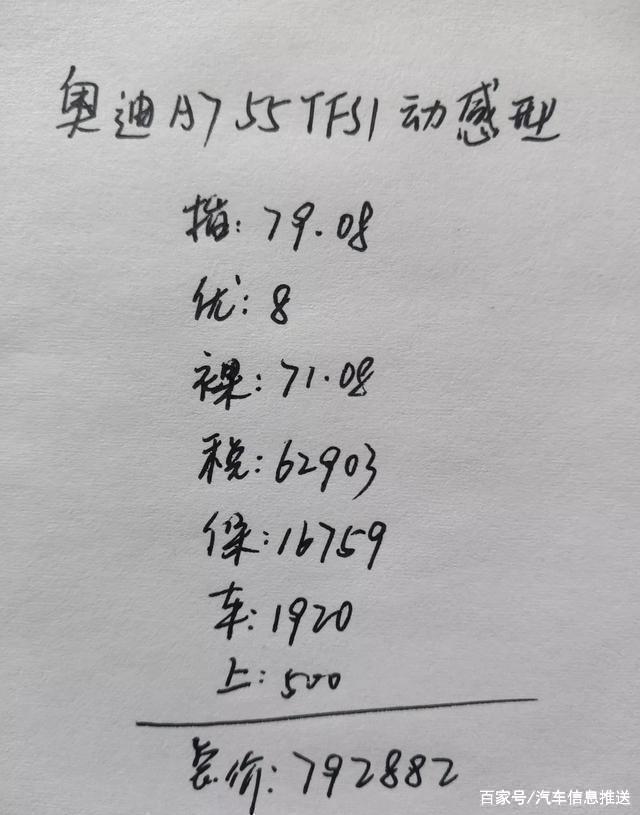 奥迪A7 55TFSI 动感型
指: 79.08
优: 8
裸: 71.08
税: 62903
保: 16759
车: 1920
上: 500
总价: 792882
百家号/汽车信息推送